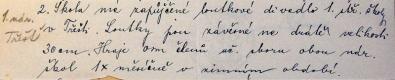 1. nám.
Třešť
2. Škola má zapůjčené loutkové divadlo 1. stř. školy
v Třešti. Loutky jsou závěsné na drátě velikosti
30 cm. Hraje om členů uč. sboru obou nár.
škol 1x měsíčně v zimním období.